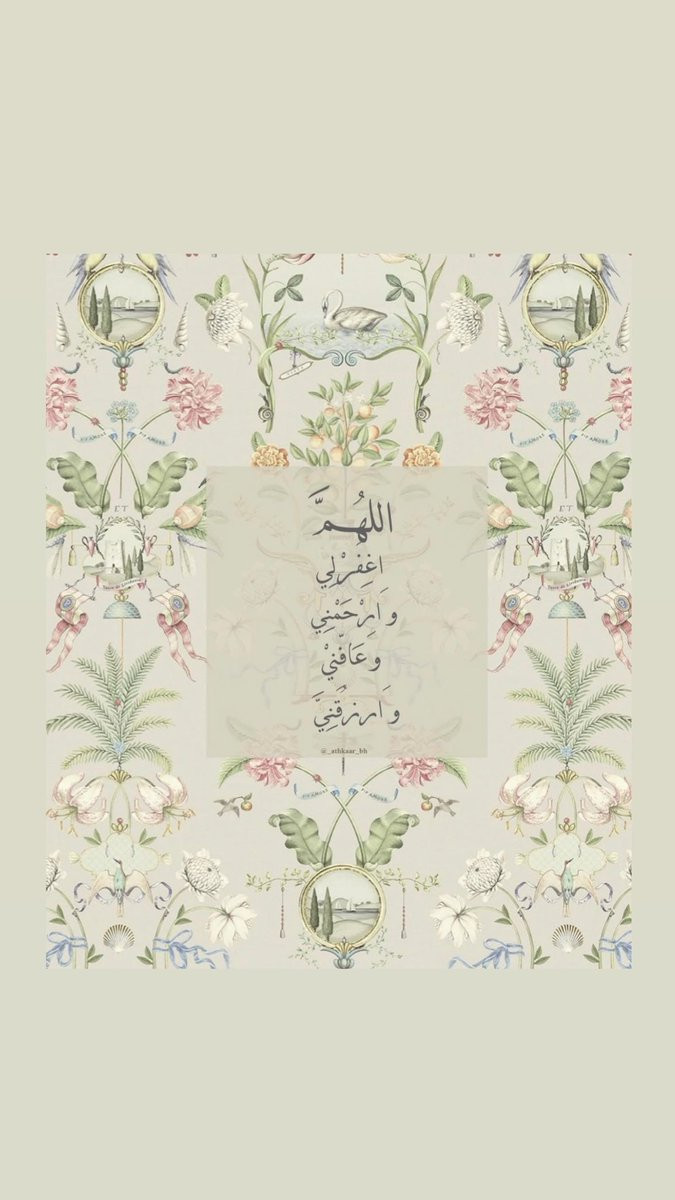 اللهُمَّ
اغِفِرْلِي
وَارِْحَمْنِي
وعَافِّنيْ
وَارزقُنِيَّ
@_athkaar_bh